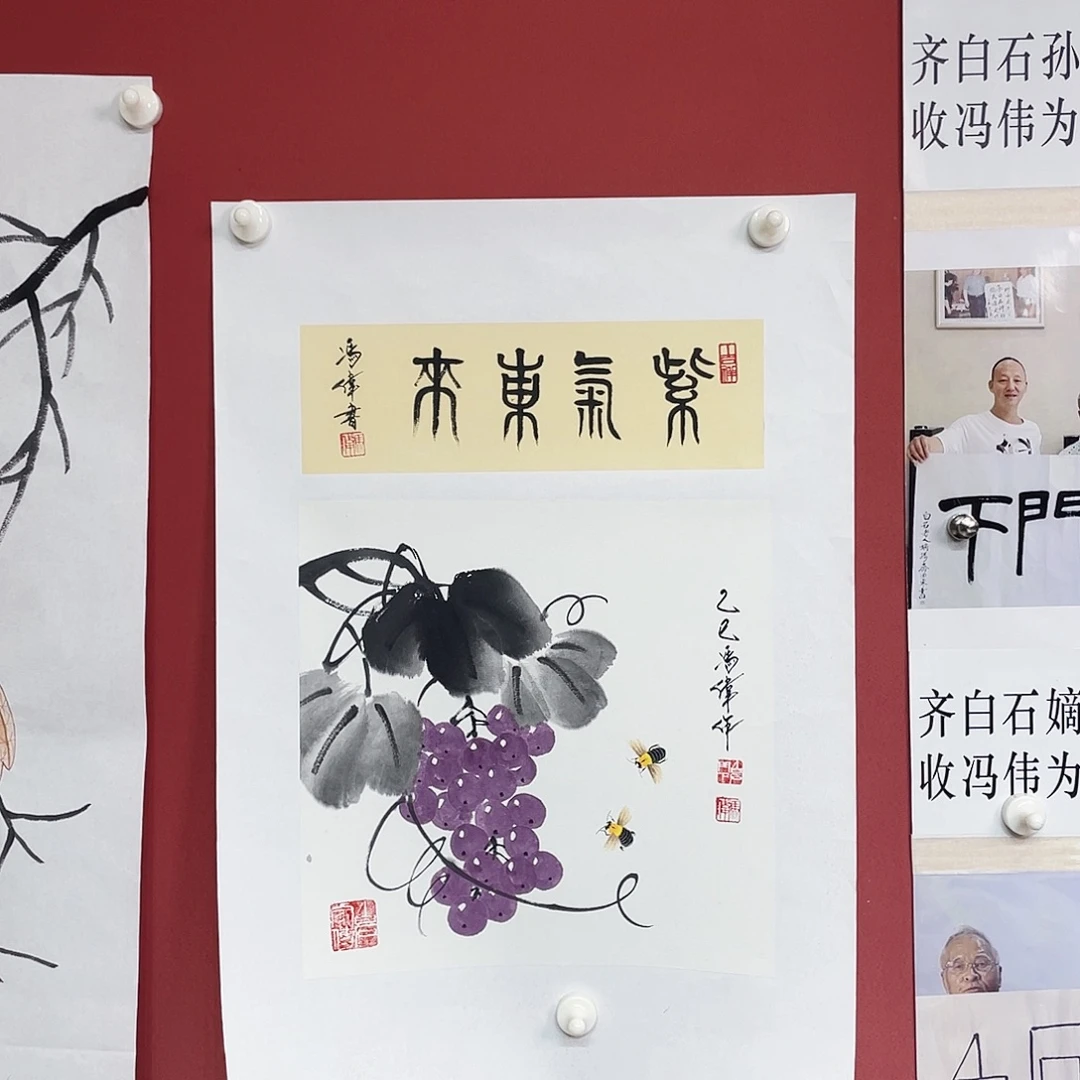 紫氣東來
馮偉書
乙巳馮偉作
齐白石孙
收冯伟为
門下
齐白石嫡
收冯伟为